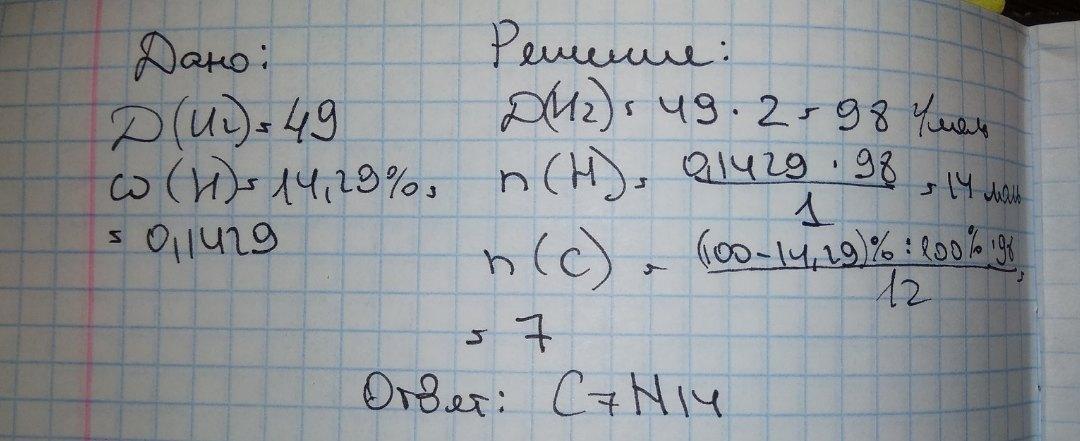 Дано:
D(H2) = 49
ω(H) = 14,29% =
= 0,1429
Решение:
D(H2) = 49 · 2 = 98 г/моль
n(H) = 0,1429 · 98 / 1 = 14 моль
n(C) = (100-14,29)% : 100% · 98 / 12 =
= 7
Ответ: C7H14